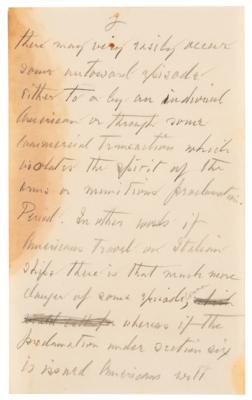 2
there may very easily occur
some untoward episode
either to or by an individual
American or through some
commercial transaction which
violates the spirit of the
arms or munitions proclamation
Period. In other words if
Americans travel on Italian
ships there is that much more
danger of some episode,
whereas if the
proclamation under section six
is issued Americans will